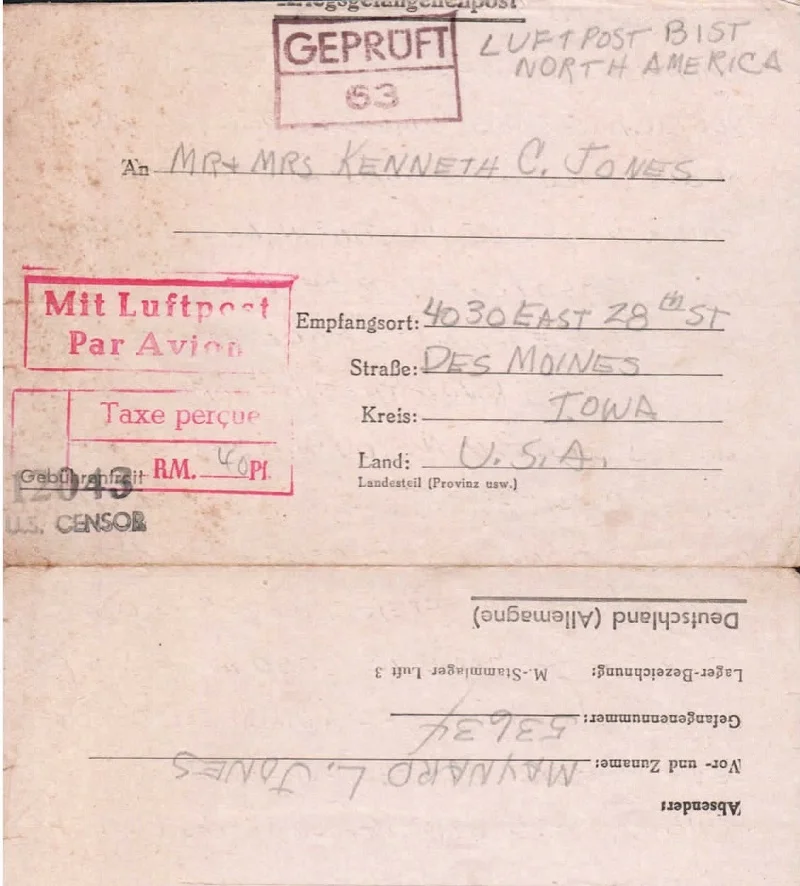 Kriegsgefangenenpost
GEPRÜFT
63
LUFTPOST BIST
NORTH AMERICA
An MR + MRS KENNETH C. JONES
Mit Luftpost
Par Avion
Empfangsort: 4030 EAST 28th ST
Straße: DES MOINES
Taxe perçue
Kreis: IOWA
RM. 40 Pf.
Land: U.S.A.
Landesteil (Provinz usw.)
Gebührenfreit
12043
U.S. CENSOR
Absender:
Vor- und Zuname: MAYNARD L. JONES
Gefangenennummer:
Lager-Bezeichnung: M.-Stammlager Luft 3
Deutschland (Allemagne)